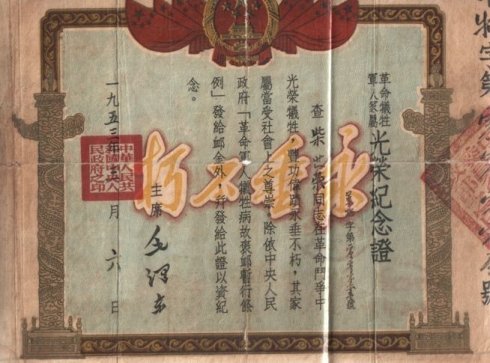 革命犧牲
軍人家屬
光榮紀念證
查柴
同志在革命鬥爭中
光榮犧牲
永垂不朽，其家
屬當受社會上之尊崇。除依中央人民
政府「革命軍人犧牲病故褒卹暫行條
例」發給卹金外，并發給此證以資紀
念。
主席 毛澤東
一九五三年 月 六 日
中華人民共
和國中央人
民政府之印
永垂不朽